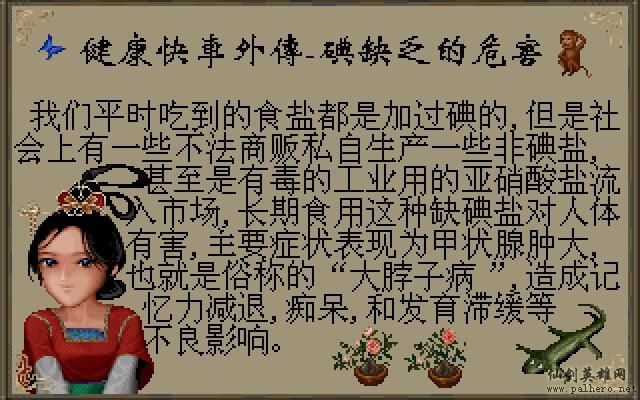 健康快車外傳-碘缺乏的危害
我们平时吃到的食盐都是加过碘的,但是社
会上有一些不法商贩私自生产一些非碘盐,
甚至是有毒的工业用的亚硝酸盐流
入市场,长期食用这种缺碘盐对人体
有害,主要症状表现为甲状腺肿大,
也就是俗称的“大脖子病 ”,造成记
忆力减退,痴呆,和发育滞缓等
不良影响。
仙剑英雄网
www.palhero.net